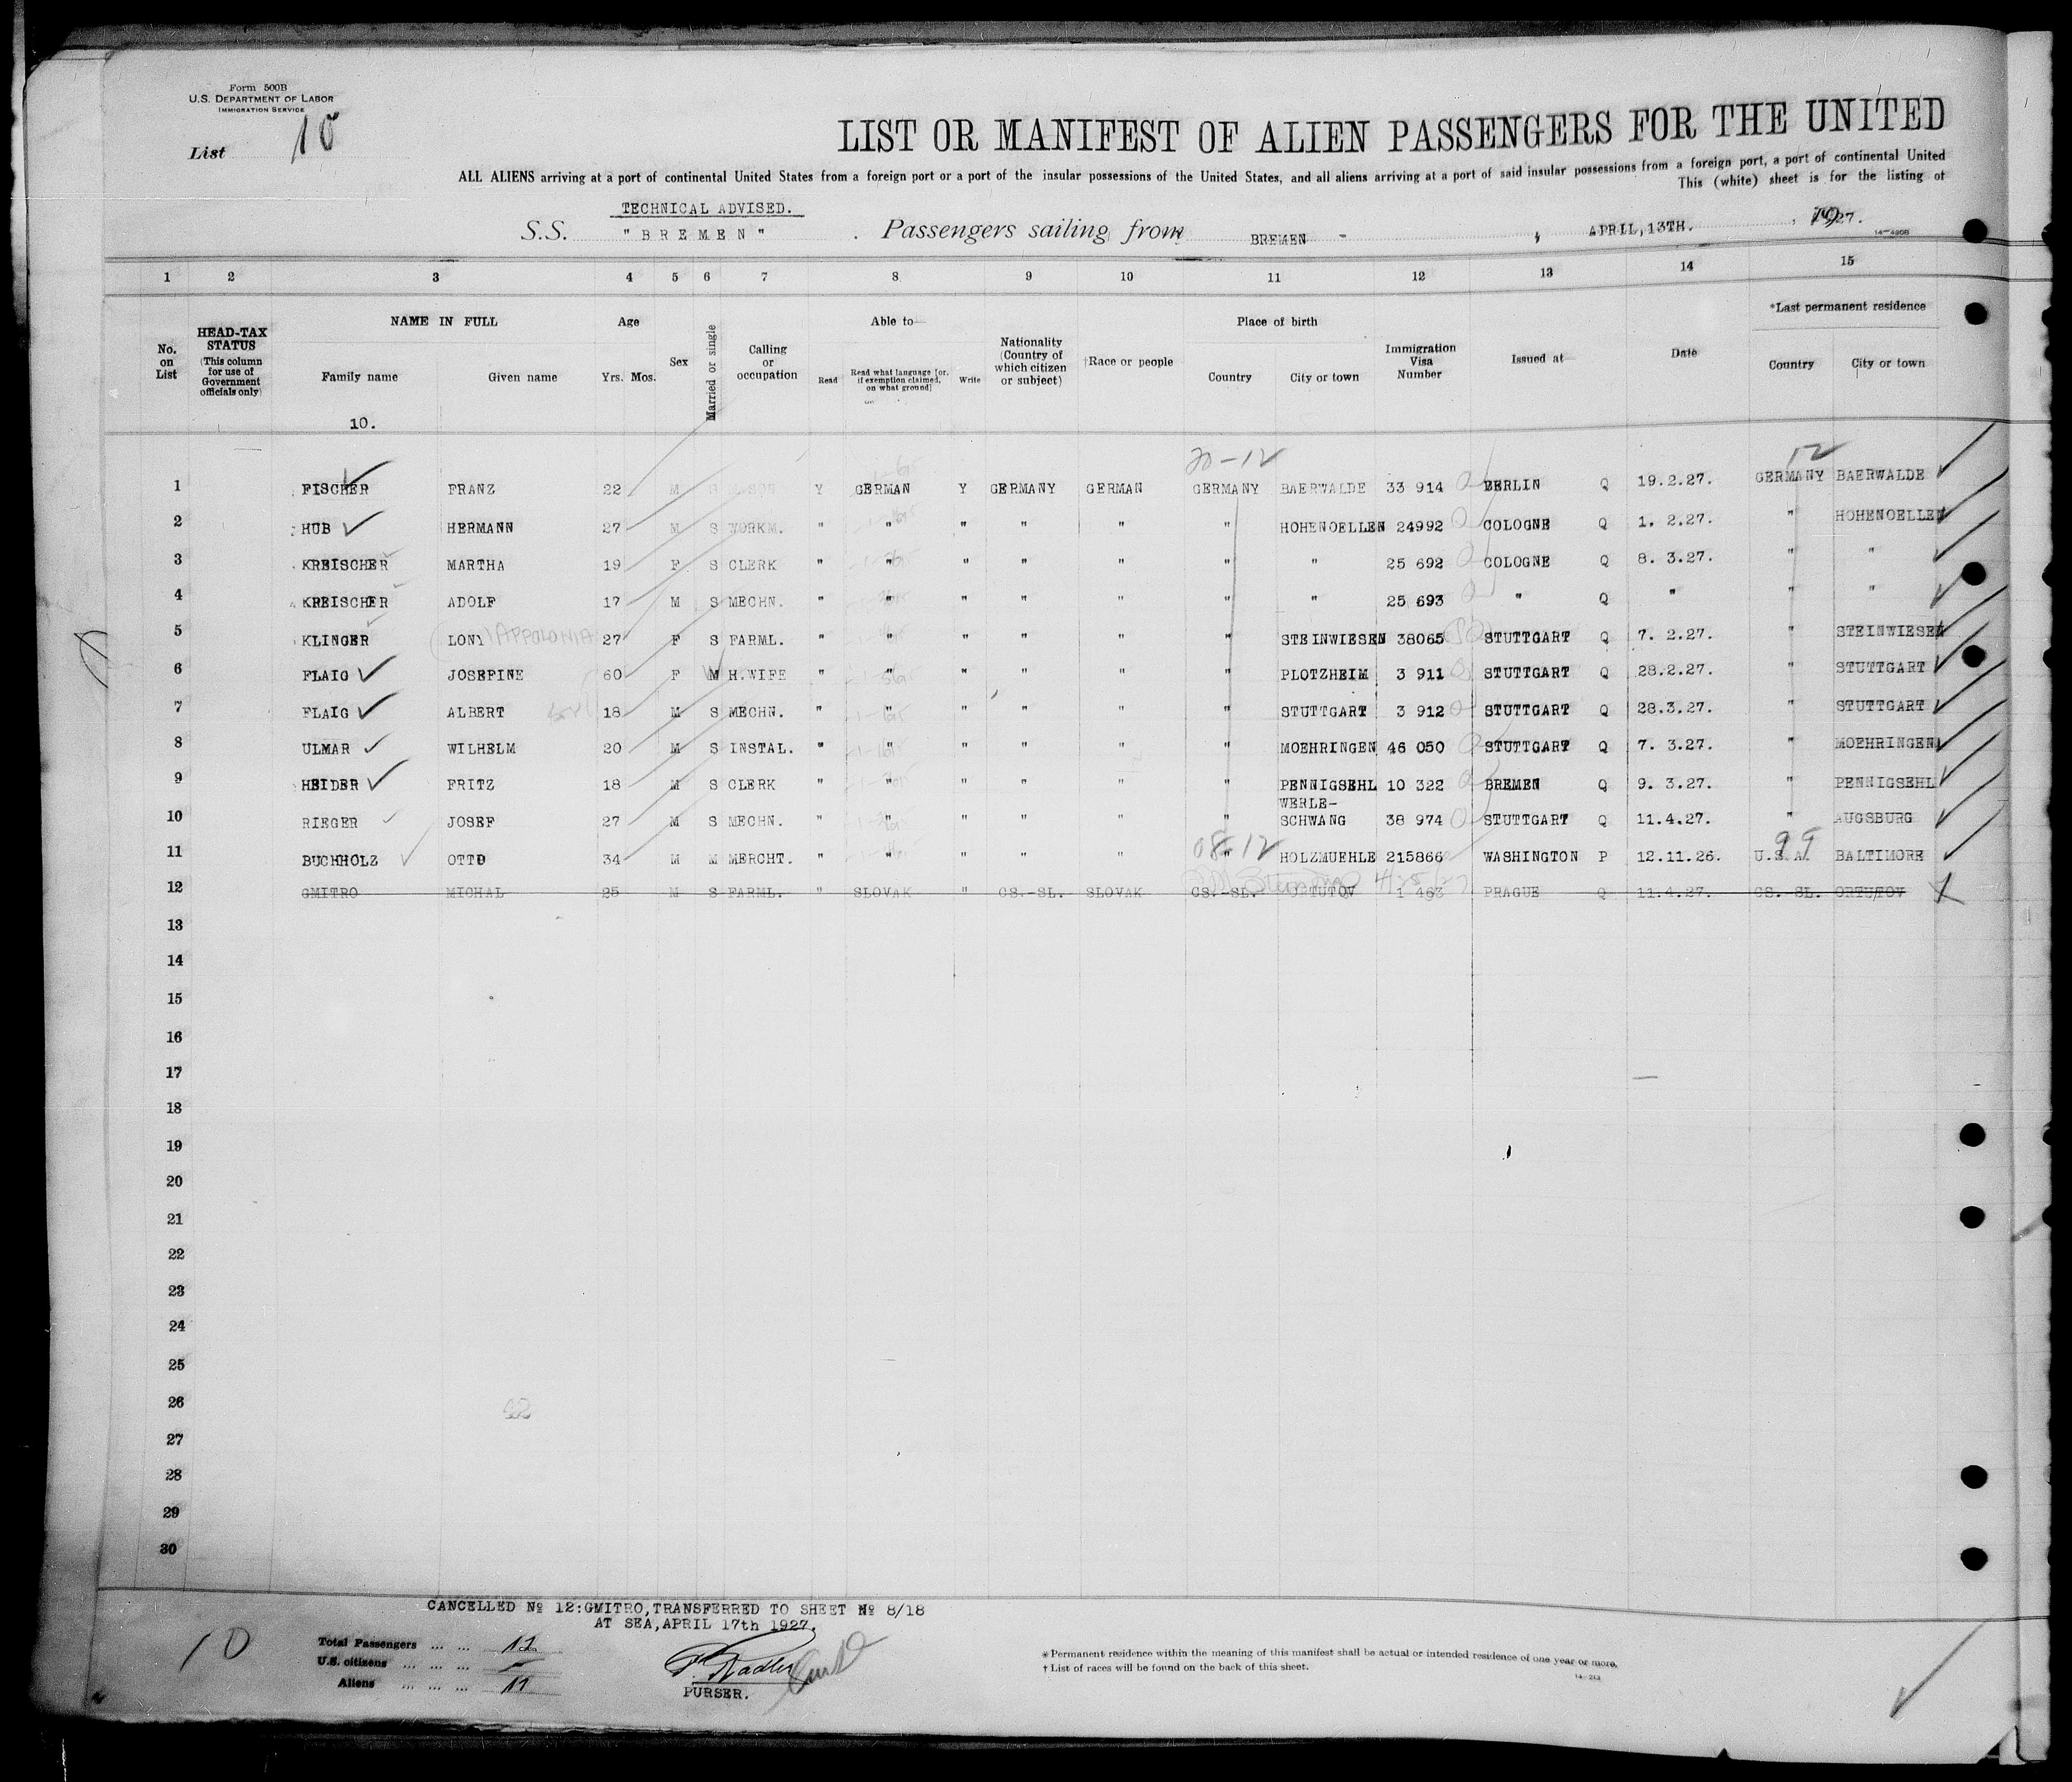 Form 500B
U.S. DEPARTMENT OF LABOR
IMMIGRATION SERVICE
List 10
LIST OR MANIFEST OF ALIEN PASSENGERS FOR THE UNITED
ALL ALIENS arriving at a port of continental United States from a foreign port or a port of the insular possessions of the United States, and all aliens arriving at a port of said insular possessions from a foreign port, a port of continental United
This (white) sheet is for the listing of
TECHNICAL ADVISED.
S.S. "BREMEN" . Passengers sailing from BREMEN - , APRIL,13TH. , 1927.
14-4908
1 2 3 4 5 6 7 8 9 10 11 12 13 14 15
No. on List
HEAD-TAX STATUS (This column for use of Government officials only)
NAME IN FULL
Family name Given name
Age
Yrs. Mos.
Sex
Married or single
Calling or occupation
Able to—
Read Read what language [or, if exemption claimed, on what ground] Write
Nationality (Country of which citizen or subject)
†Race or people
Place of birth
Country City or town
Immigration Visa Number
Issued at—
Date
*Last permanent residence
Country City or town
10.
20-12 12
1 FISCHER FRANZ 22 M Y GERMAN Y GERMANY GERMAN GERMANY BAERWALDE 33 914 BERLIN Q 19.2.27. GERMANY BAERWALDE
2 HUB HERMANN 27 M S WORKM. " " " " " " HOHENOELLEN 24992 COLOGNE Q 1. 2.27. " HOHENOELLEN
3 KREISCHER MARTHA 19 F S CLERK " " " " " " " 25 692 COLOGNE Q 8. 3.27. " "
4 KREISCHER ADOLF 17 M S MECHN. " " " " " " " 25 693 " Q " " "
5 KLINGER LONY (APPOLONIA 27 F S FARML. " " " " " " STEINWIESEN 38065 STUTTGART Q 7. 2.27. " STEINWIESEN
6 FLAIG JOSEFINE 60 F M H.WIFE " " " " " " PLOTZHEIM 3 911 STUTTGART Q 28.2.27. " STUTTGART
7 FLAIG ALBERT 18 M S MECHN. " " " " " " STUTTGART 3 912 STUTTGART Q 28.3.27. " STUTTGART
8 ULMAR WILHELM 20 M S INSTAL. " " " " " " MOEHRINGEN 46 050 STUTTGART Q 7. 3.27. " MOEHRINGEN
9 HEIDER FRITZ 18 M S CLERK " " " " " " PENNIGSEHL 10 322 BREMEN Q 9. 3.27. " PENNIGSEHL
WERLE-
10 RIEGER JOSEF 27 M S MECHN. " " " " " " SCHWANG 38 974 STUTTGART Q 11.4.27. " AUGSBURG
08-12 99
11 BUCHHOLZ OTTO 34 M M MERCHT. " " " " " " HOLZMUEHLE 215866 WASHINGTON P 12.11.26. U.S.A. BALTIMORE
12 GMITRO MICHAL 25 M S FARML. " SLOVAK " CS.-SL. SLOVAK CS.-SL. ORTUTOV 1 463 PRAGUE Q 11.4.27. CS. SL. ORTUTOV
13
14
15
16
17
18
19
20
21
22
23
24
25
26
27
28
29
30
CANCELLED № 12:GMITRO,TRANSFERRED TO SHEET № 8/18
AT SEA,APRIL 17th 1927.
10
Total Passengers ... ... 11
U.S. citizens ... ... ... -
Aliens ... ... ... 11
PURSER.
* Permanent residence within the meaning of this manifest shall be actual or intended residence of one year or more.
† List of races will be found on the back of this sheet.